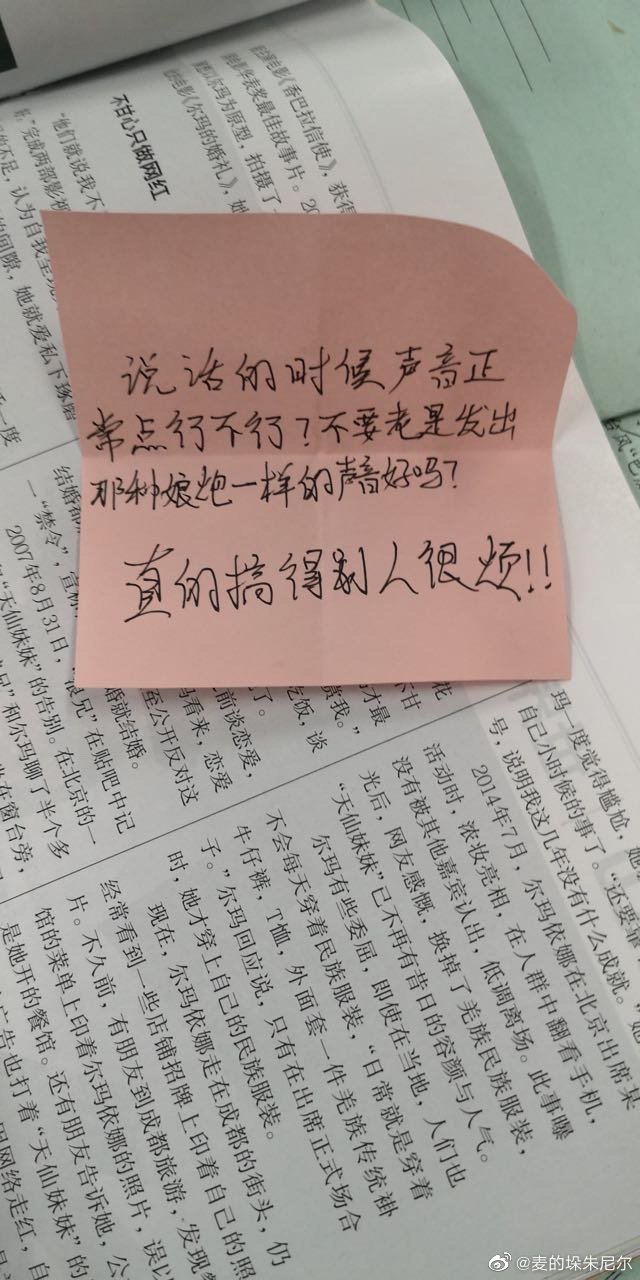 说话的时候声音正
常点行不行？不要老是发出
那种娘炮一样的声音好吗？
真的搞得别人很烦!!
影《香巴拉信使》，获得
华表奖最佳故事片。20
尔玛为原型，拍摄了
电影《尔玛的婚礼》，她
不甘心只做网红
“他们就说我不
完成两部影视
不足，认为自我呈现
的间隙，她就爱私下琢磨
一度
结婚都
一“禁令”，宣称
2007年8月31日，“浪兄”在贴吧中记
“天仙妹妹”的告别。在北京的一
兄”和尔玛聊了半个多
坐在窗台旁，
婚就结婚。
至公开反对这
玛看来，恋爱
前谈恋爱，
吃饭，谈
玛一度觉得尴尬，她
自己小时候的事了。“还要靠
号，说明我这几年没有什么成就。”她
2014年7月，尔玛依娜在北京出席某
活动时，浓妆亮相，在人群中翻看手机，
没有被其他嘉宾认出，低调离场。此事曝
光后，网友感慨，换掉了羌族民族服装，
“天仙妹妹”已不再有昔日的容颜与人气。
尔玛有些委屈，即使在当地，人们也
不会每天穿着民族服装，“日常就是穿着
牛仔裤，T恤，外面套一件羌族传统褂
子。”尔玛回应说，只有在出席正式场合
时，她才穿上自己的民族服装。
现在，尔玛依娜走在成都的街头，仍
经常看到一些店铺招牌上印着自己的照
片。不久前，有朋友到成都旅游，发现
馆的菜单上印着尔玛依娜的照片，误以
是她开的餐馆。还有朋友告诉她，公
广告也打着“天仙妹妹”的
用网络走红，自
@麦的垛朱尼尔